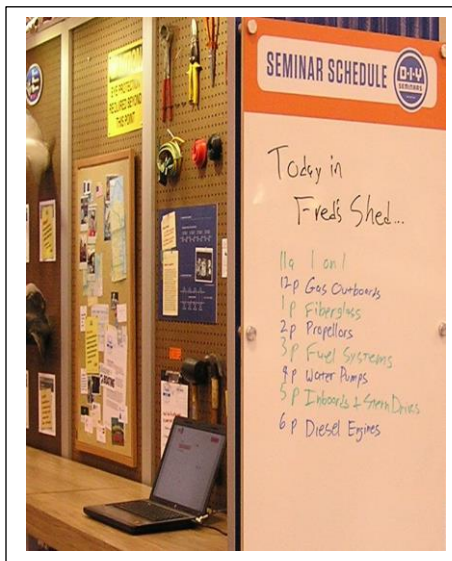 EYE PROTECTION
REQUIRED BEYOND
THIS POINT
SEMINAR SCHEDULE
D-I-Y
SEMINARS
Today in
Fred's Shed...
11a 1 on 1
12p Gas Outboards
1p Fiberglass
2p Propellors
3p Fuel Systems
4p Water Pumps
5p Inboards & Stern Drives
6p Diesel Engines